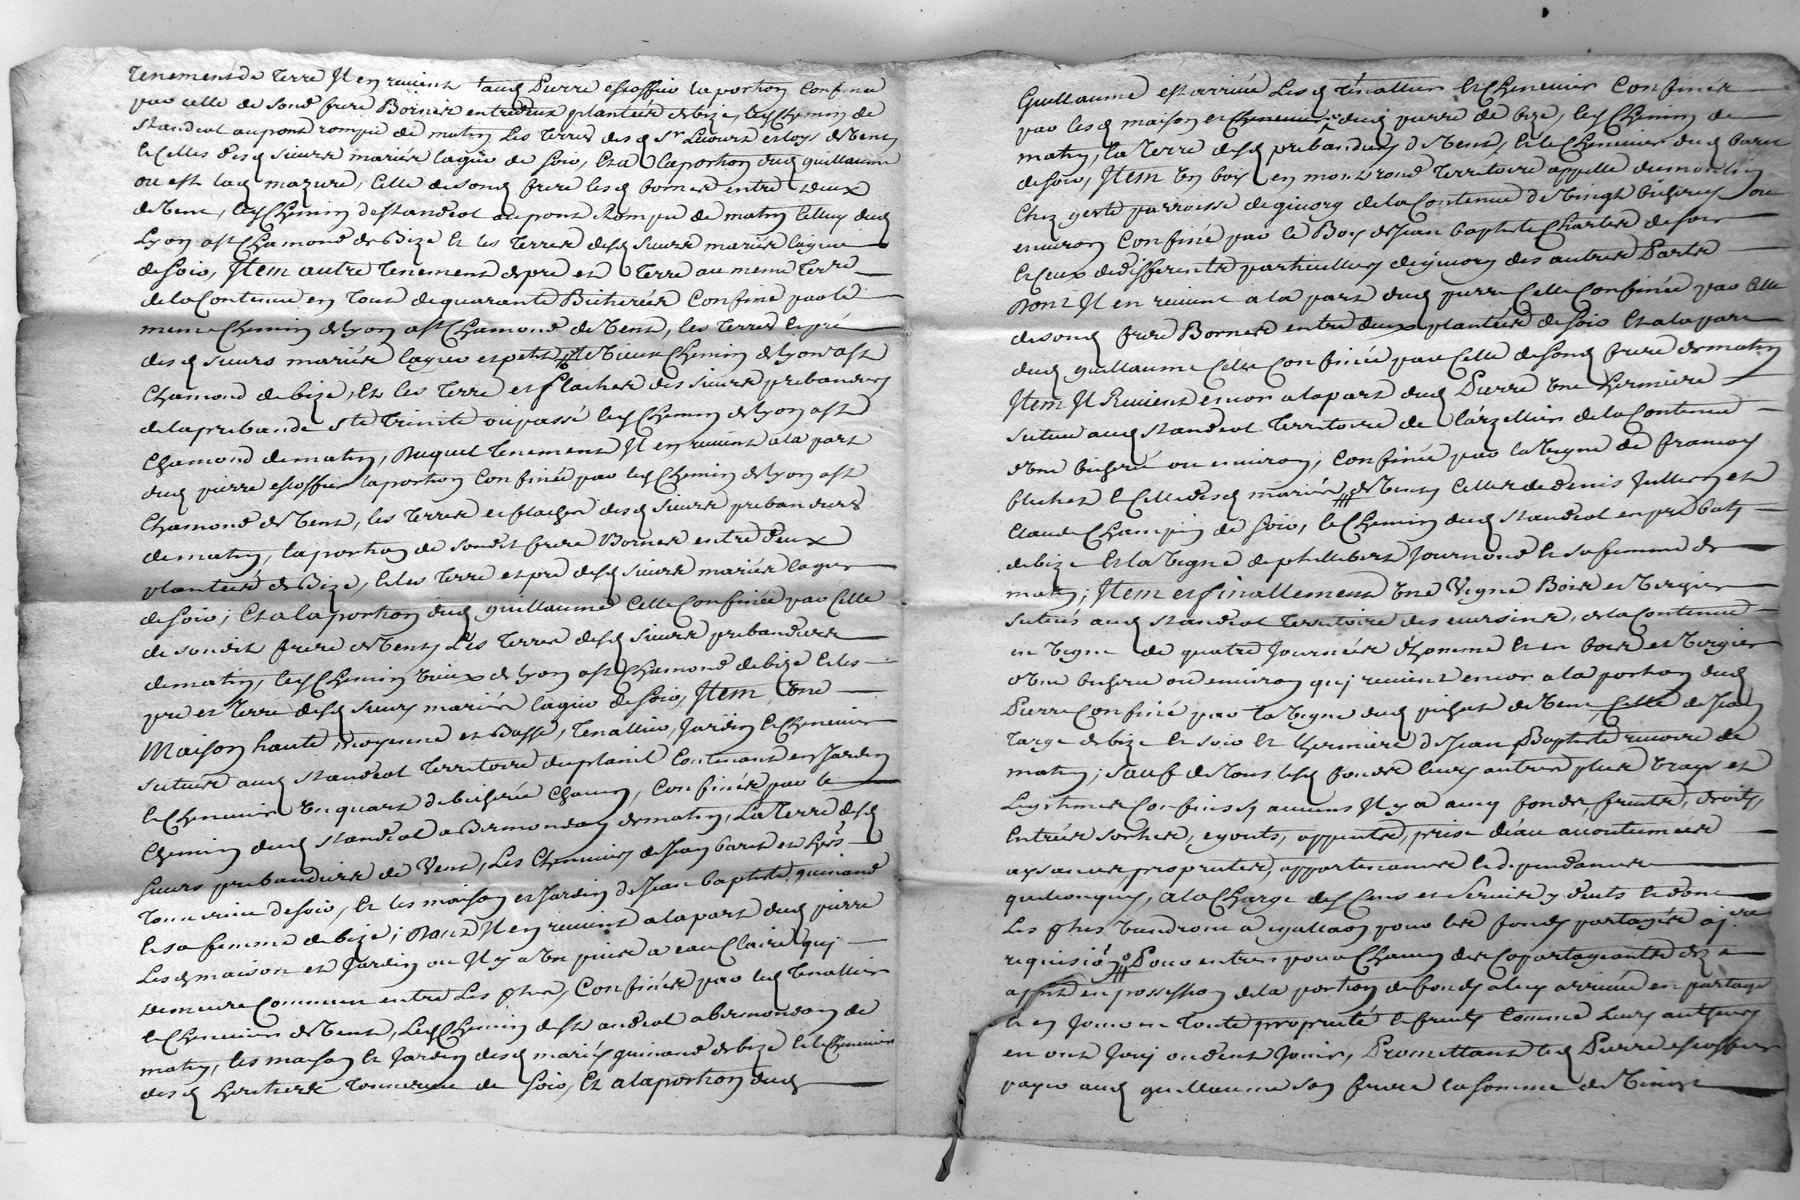 tenement de terre Il en revient aud Pierre estoffier la portion confinée
par celle de sond frere Bornée entre deux plantées de bize, led Chemin de
standeol au pont rompu de matin Les terres des d Sr
et celles desd sieurs mariés lague de soir, Et a la portion dud guillaume
ou est lad mazure, Celle de sond frere les d bornes entre deux
de vent, led Chemin de standeol au pont Rompu de matin Celluy dud
Lyon a st Chamond de Bize Et les terres desd sieurs mariés lague
de soir, Item autre tenement de pré et terre au meme terre
de la Contenue en tout de quarante Bicherées Confiné par le
meme Chemin de lyon a st Chamond de vent, les terres et pré
desd sieurs mariés lague et petit le vieux Chemin de lyon a st
Chamond de bize, Et les terre et flaches des sieurs prebandiers
de la prebande ste trinité ou passé led Chemin de lyon a st
Chamond de matin, Duquel tenement Il en revient a la part
dud pierre estoffier la portion Confinée par led Chemin de lyon a st
Chamond de vent, les terres et flaches desd sieurs prebandiers
de matin, la portion de sondit frere Bornes entre deux
plantées de Bize, Et les terre et pré desd sieurs mariés lague
de soir; Et a la portion dud guillaume Celle Confinée par Celle
de sondit frere de vent, Les terres desd sieurs prebandiers
de matin, led Chemin vieux de lyon a st Chamond de bize et les
pré et terre desd sieurs mariés lague de soir, Item, une
Maison haute, moyenne et Basse, tenallier, Jardin et Chenevier
situés aud standeol territoire du planil Contenant en Jardin
et Chenevier un quart de bicherée Chacun, Confinés par le
Chemin dud standeol a Bermondon de matin, La terre desd
sieurs prebandiers de vent, Les Cheneviers de Jean baret et
de soir, Et les maison et Jardin de Jean baptiste guinand
et sa femme de bize; Dont Il en revient a la part dud pierre
Les d maison et Jardin ou Il y a un puits a eau Claire qui
demeure Commun entre Les pties, Confinés par led tenallier
et Chenevier de vent, Led Chemin de st andeol a bermondon de
matin, les maison et Jardin desd mariés guinand de bize et le Chenevier
desd heritiers de soir, Et a la portion dud
Guillaume est arrivé Les d tenallier et Chenevier Confinés
par lesd maison et dud pierre de bize, led Chemin de
matin, la terre desd prebandiers de vent, Et le Chenevier dud baret
de soir, Item un bois en montrond territoire appellé du moulin
Chez parroisse de givors de la Contenue de vingt bicherées ou
environ Confiné par le Bois de Jean baptiste de soir
et Ceux de differents particuliers de givors des autres Parts
Dont Il en revient a la part dud pierre Celle Confinée par Celle
de sond frere Bornes entre deux plantées de soir Et a la part
dud guillaume Celle Confinée par Celle de sond frere de matin
Item Il Revient encor a la part dud Pierre une hermiere
située aud standeol territoire de l'arzellier de la Contenue
d'une bicherée ou environ, Confinée par la vigne de francois
et celle desd mariés de vent, Celles de denis Jullien et
Claude Champin de soir, le Chemin dud standeol en
de bize Et la vigne de phillibert Journoud et sa femme de
matin; Item et finallement une Vigne Bois et vergier
situés aud standeol territoire des de la Contenue
en vigne de quatre Journées d'homme Et en bois et vergier
d'une bicherée ou environ qui revient encor a la portion dud
Pierre Confiné par la vigne dud de vent, Celle de Jean
targe de bize et soir Et hermiere de Jean Baptiste de
matin; sauf de tous lesd fonds leurs autres plus vrays et
Legitimes Confins sy aucuns Il y a avec fonds, fruits, droits,
Entrées sorties, egouts, prise d'eau accoutumées
aysances proprietes, appartenances et dependances
quelconques, a la Charge des Cens et servis y deus et dont
Les pties viendront a egallation pour les fonds partagés
requisition Pour entrer pour Chacun des Copartageants dez a
present en possession de la portion de fonds a luy arrivée en partage
et en Jouir en toute proprieté et fruits Comme Leurs autheurs
en ont Joui ou deut Jouir, Promettant led Pierre estoffier
payer aud guillaume son frere la somme de vingt